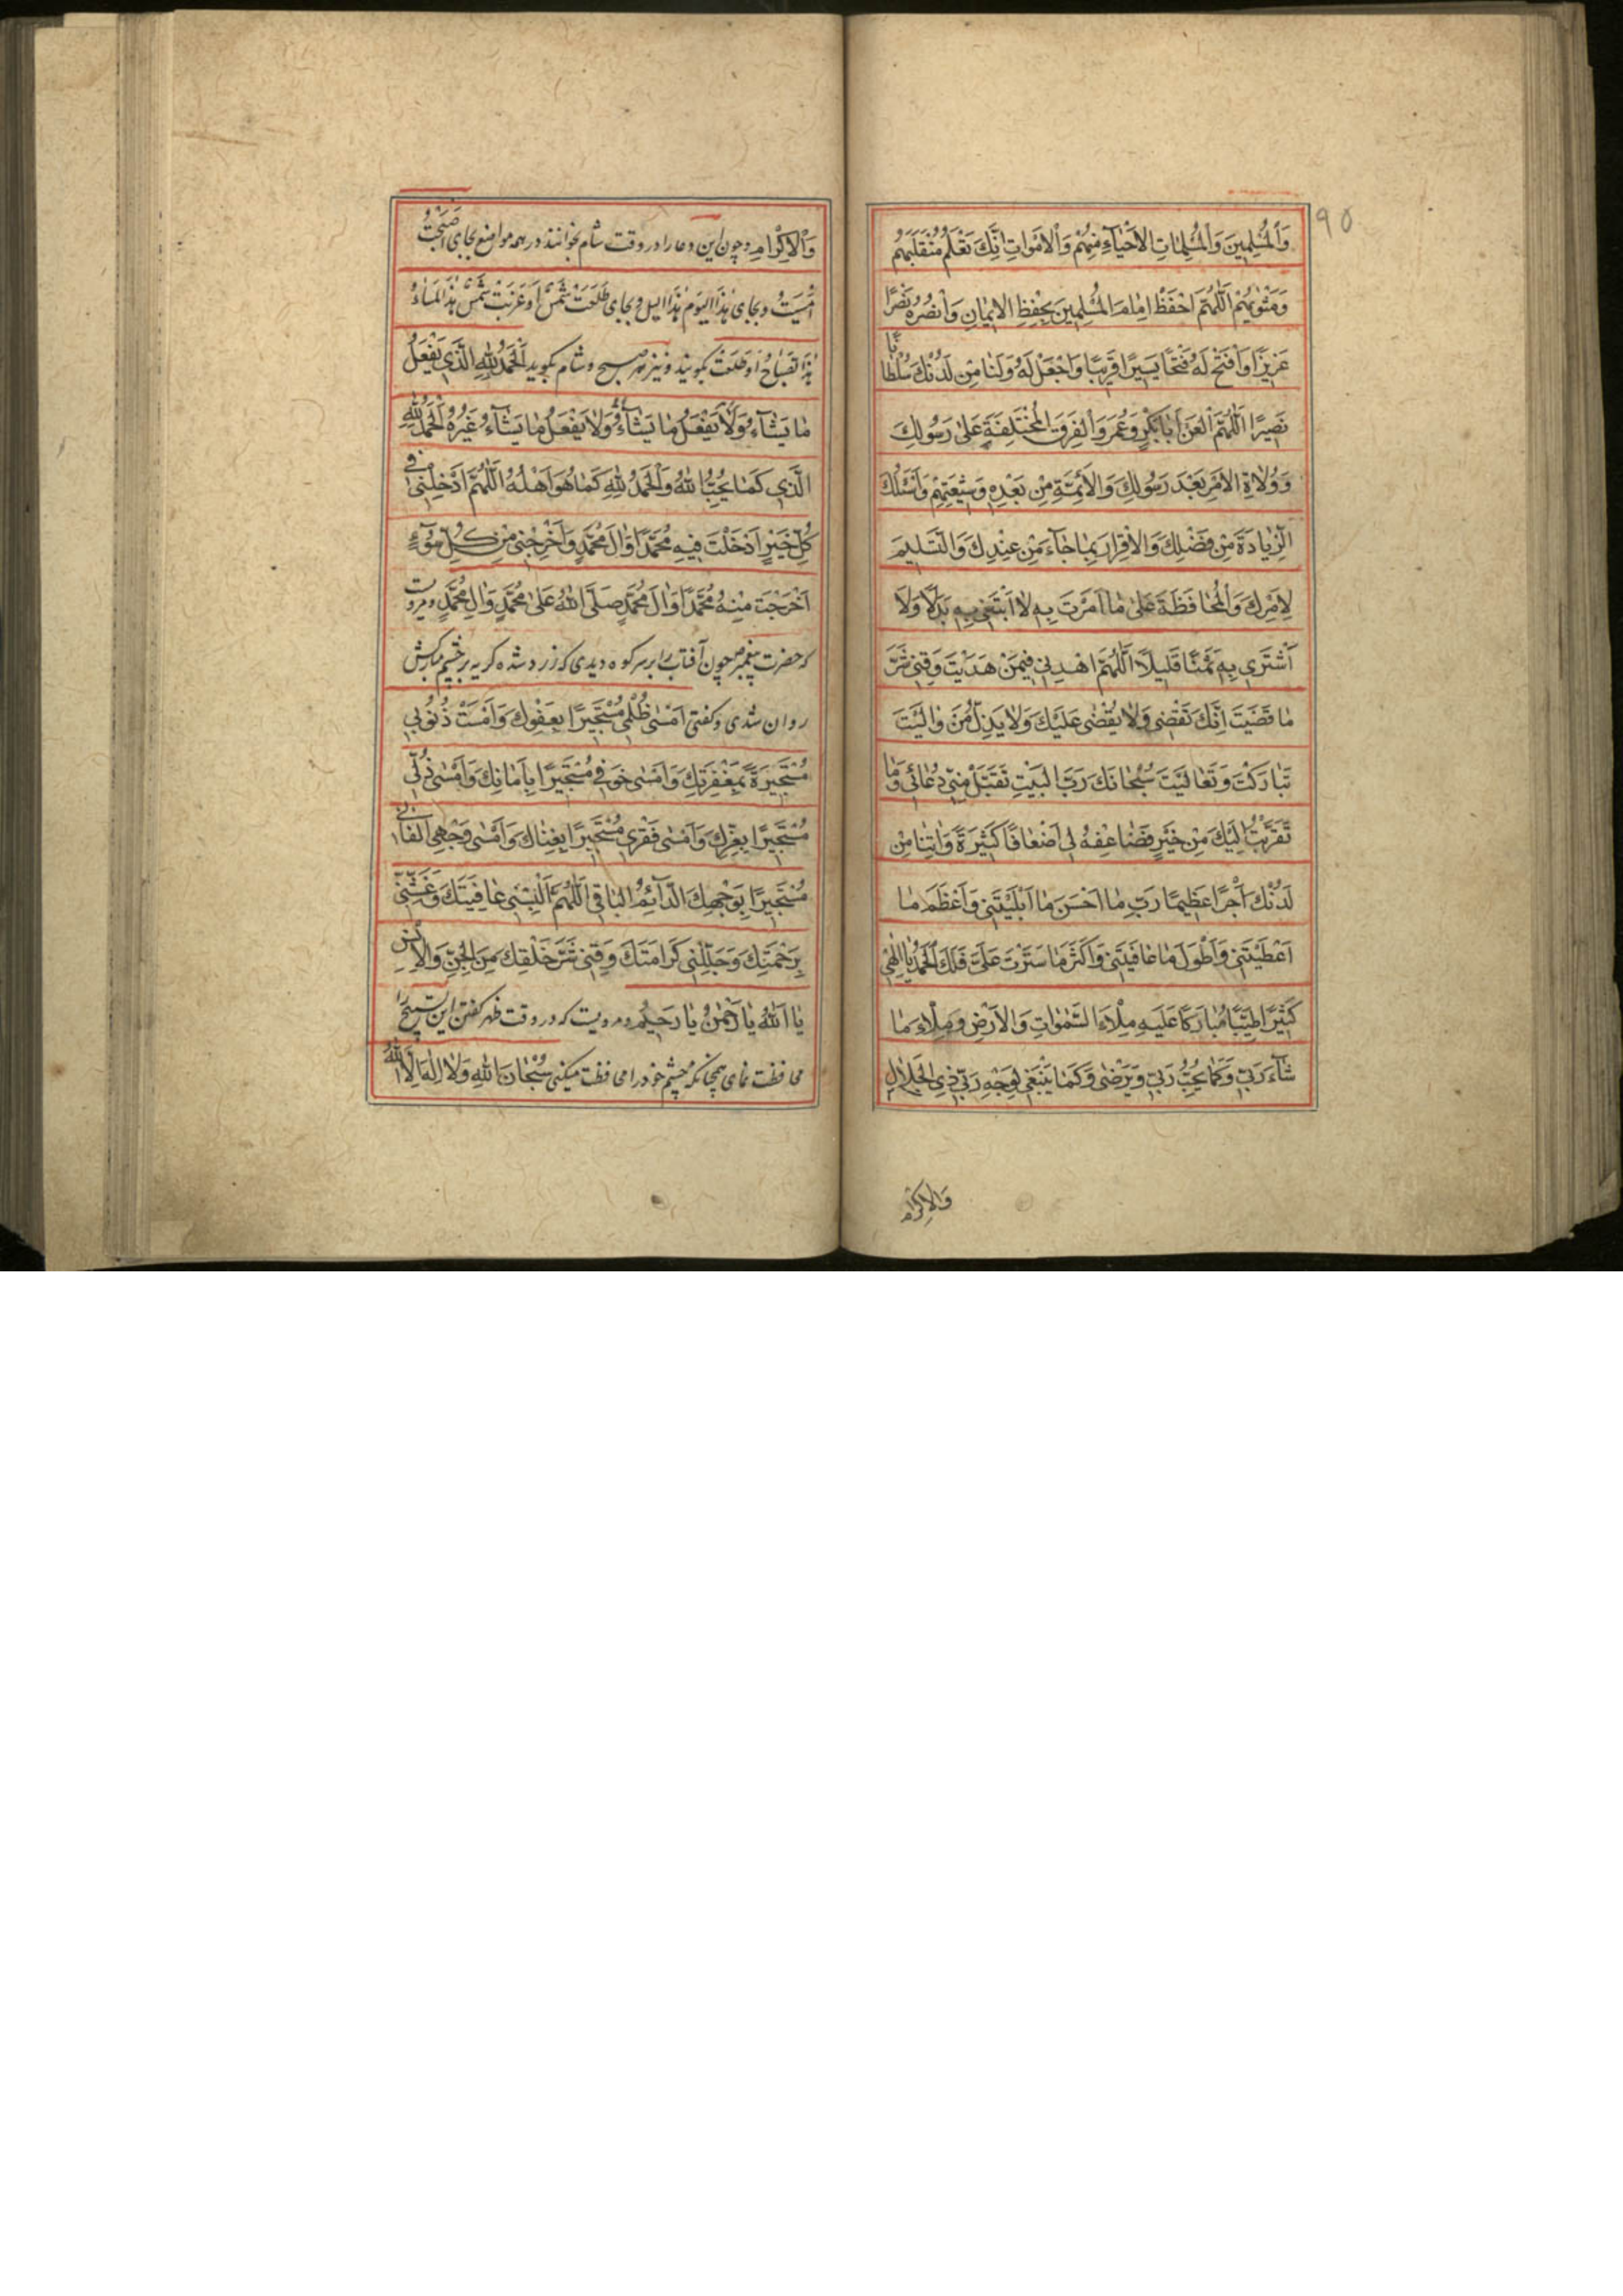 ٩٥
وَالْمُسْلِمِينَ وَالْمُسْلِمَاتِ الْأَحْيَاءِ مِنْهُمْ وَالْأَمْوَاتِ إِنَّكَ تَعْلَمُ مُنْقَلَبَهُمْ
وَمَثْوٰيهُمْ اَللّٰهُمَّ احْفَظْ اِمَامَ الْمُسْلِمِينَ بِحِفْظِ الْاِيمَانِ وَانْصُرْهُ نَصْرًا
عَزِيزًا وَافْتَحْ لَهُ فَتْحًا يَسِيرًا قَرِيبًا وَاجْعَلْ لَهُ وَلَنَا مِنْ لَدُنْكَ سُلْطَانًا
نَصِيرًا اَللّٰهُمَّ الْعَنْ اَبَابَكْرٍ وَعُمَرَ وَالْفِرَقَ الْمُخْتَلِفَةَ عَلىٰ رَسُولِكَ
وَوُلَاةِ الْاَمْرِ بَعْدَ رَسُولِكَ وَالْاَئِمَّةِ مِنْ بَعْدِهِ وَشِيعَتِهِمْ وَاَسْئَلُكَ
الزِّيَادَةَ مِنْ فَضْلِكَ وَالْاِقْرَارَ بِمَا جَاءَ مِنْ عِنْدِكَ وَالتَّسْلِيمَ
لِاَمْرِكَ وَالْمُحَافَظَةَ عَلىٰ مَا اَمَرْتَ بِهِ لَا اَبْتَغِي بِهِ بَدَلًا وَلَا
اَشْتَرِي بِهِ ثَمَنًا قَلِيلًا اَللّٰهُمَّ اهْدِنِي فِيمَنْ هَدَيْتَ وَقِنِي شَرَّ
مَا قَضَيْتَ اِنَّكَ تَقْضِي وَلَا يُقْضٰى عَلَيْكَ وَلَا يَذِلُّ مَنْ وَالَيْتَ
تَبَارَكْتَ وَتَعَالَيْتَ سُبْحَانَكَ رَبَّ الْبَيْتِ تَقَبَّلْ مِنِّي دُعَائِي وَمَا
تَقَرَّبْتُ اِلَيْكَ مِنْ خَيْرٍ فَضَاعِفْهُ لِي اَضْعَافًا كَثِيرَةً وَاٰتِنَا مِنْ
لَدُنْكَ اَجْرًا عَظِيمًا رَبِّ مَا اَحْسَنَ مَا اَبْلَيْتَنِي وَاَعْظَمَ مَا
اَعْطَيْتَنِي وَاَطْوَلَ مَا عَافَيْتَنِي وَاَكْثَرَ مَا سَتَرْتَ عَلَيَّ فَلَكَ الْحَمْدُ يَا اِلٰهِي
كَثِيرًا طَيِّبًا مُبَارَكًا عَلَيْهِ مِلْاَءَ السَّمٰوَاتِ وَالْاَرْضِ وَمِلْاَءَ مَا
شَاءَ رَبِّي وَكَمَا يُحِبُّ رَبِّي وَيَرْضٰى وَكَمَا يَنْبَغِي لِوَجْهِ رَبِّي ذِي الْجَلَالِ
وَالْاِكْرَامِ
وَالْاِكْرَامِ وچون این دعا را در وقت شام بخوانند در همه مواضع بجای اَصْبَحْتُ
اَمْسَيْتُ وبجای هٰذَا الْيَوْمِ هٰذَا اللیل وبجای طَلَعَتْ شَمْسٌ اَوْ غَرَبَتْ شَمْسُ هٰذَا الْمَسَاءُ
اَوْ طَلَعَتْ بگویند ونیز هر صبح وشام بگوید اَلْحَمْدُ لِلّٰهِ الَّذِي يَفْعَلُ
مَا يَشَاءُ وَلَا يَفْعَلُ مَا يَشَاءُ وَلَا يَفْعَلُ مَا يَشَاءُ غَيْرُهُ اَلْحَمْدُ لِلّٰهِ
الَّذِي كَمَا يُحِبُّ اللّٰهُ وَالْحَمْدُ لِلّٰهِ كَمَا هُوَ اَهْلُهُ اَللّٰهُمَّ اَدْخِلْنِي فِي
كُلِّ خَيْرٍ اَدْخَلْتَ فِيهِ مُحَمَّدًا وَاٰلَ مُحَمَّدٍ وَاَخْرِجْنِي مِنْ كُلِّ سُوءٍ
اَخْرَجْتَ مِنْهُ مُحَمَّدًا وَاٰلَ مُحَمَّدٍ صَلَّى اللّٰهُ عَلىٰ مُحَمَّدٍ وَاٰلِ مُحَمَّدٍ ومرویت
که حضرت پیغمبر ص چون آفتاب را بر سر کوه دیدی که زرد شده گریه بر چشم مبارکش
روان شدی وگفتی اَمْسٰى ظُلْمِي مُسْتَجِيرًا بِعَفْوِكَ وَاَمْسَتْ ذُنُوبِي
مُسْتَجِيرَةً بِمَغْفِرَتِكَ وَاَمْسٰى خَوْفِي مُسْتَجِيرًا بِاَمَانِكَ وَاَمْسٰى ذُلِّي
مُسْتَجِيرًا بِعِزِّكَ وَاَمْسٰى فَقْرِي مُسْتَجِيرًا بِغِنَاكَ وَاَمْسٰى وَجْهِي الْفَانِي
مُسْتَجِيرًا بِوَجْهِكَ الدَّائِمِ الْبَاقِي اَللّٰهُمَّ اَلْبِسْنِي عَافِيَتَكَ وَغَشِّنِي
بِرَحْمَتِكَ وَجَلِّلْنِي كَرَامَتَكَ وَقِنِي شَرَّ خَلْقِكَ مِنَ الْجِنِّ وَالْاِنْسِ
يَا اَللّٰهُ يَا رَحْمٰنُ يَا رَحِيمُ ومرویت که در وقت ظهر گفتن این تسبیح را
محافظت نمای همچنانکه چشم خود را محافظت میکنی سُبْحَانَ اللّٰهِ وَلَا اِلٰهَ اِلَّا اللّٰهُ